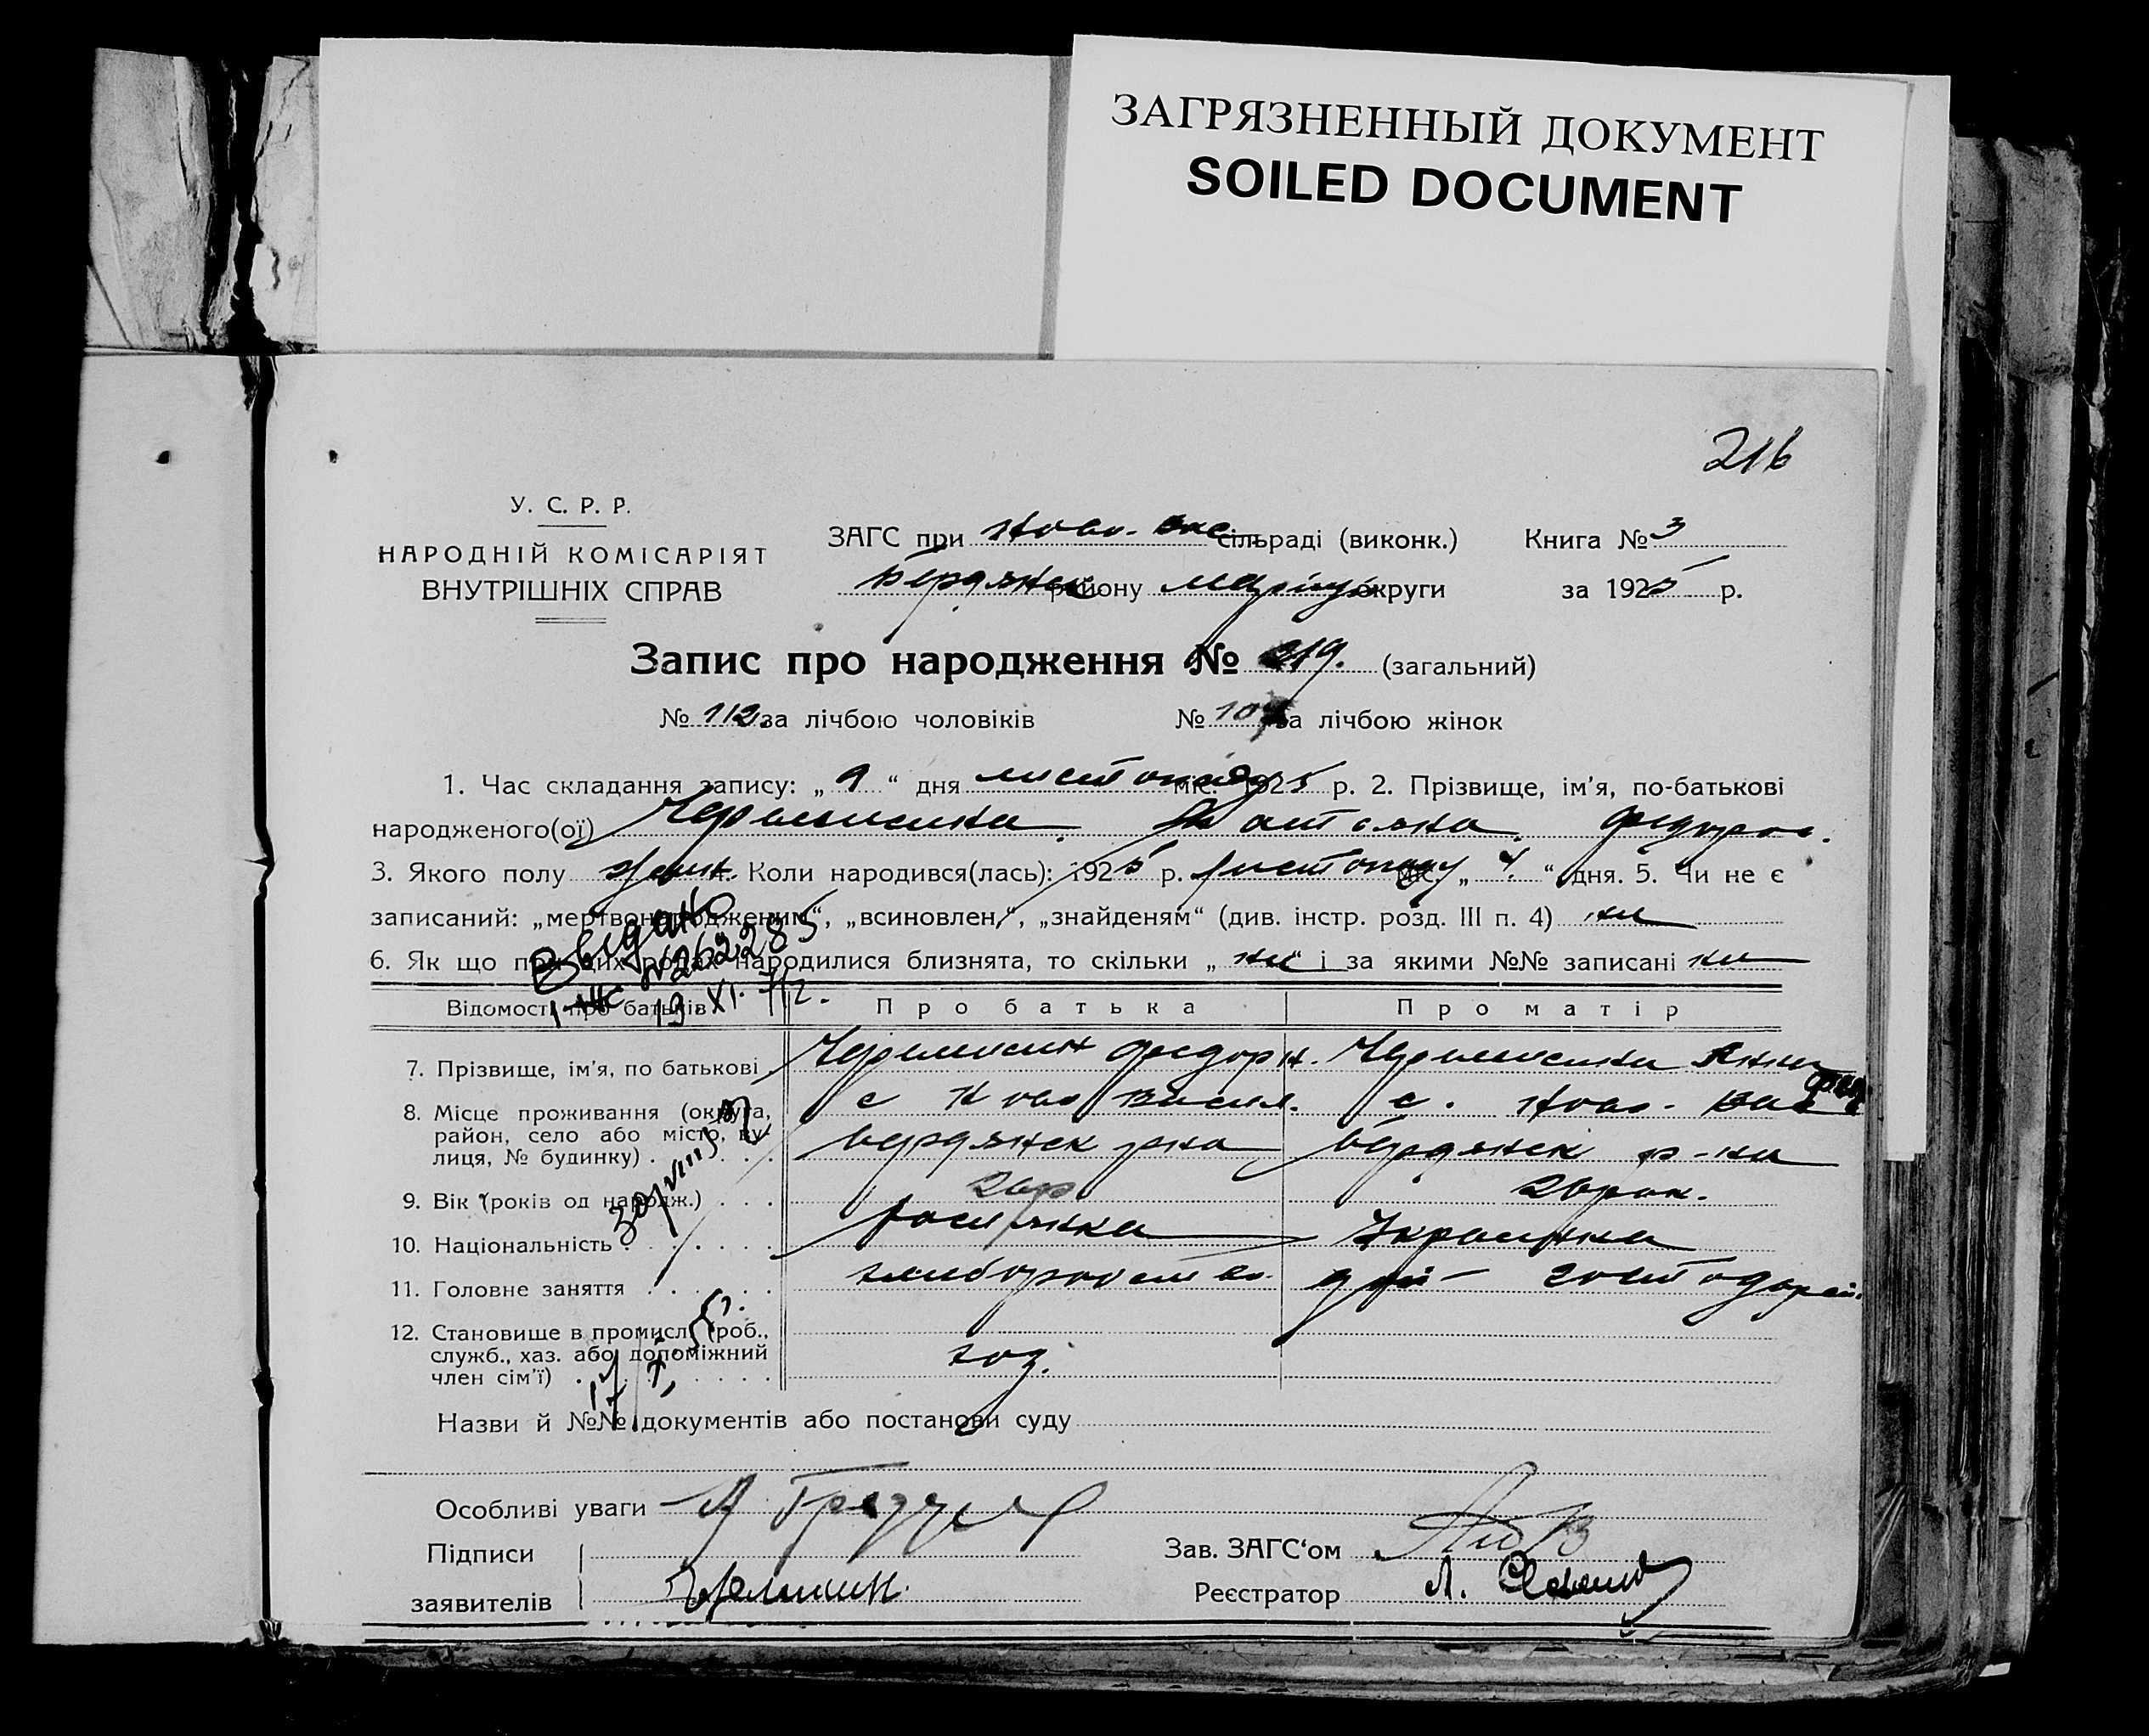 ЗАГРЯЗНЕННЫЙ ДОКУМЕНТ
SOILED DOCUMENT
216
У. С. Р. Р.
НАРОДНІЙ КОМІСАРІЯТ
ВНУТРІШНІХ СПРАВ
ЗАГС при Ново-Вас сільраді (виконк.) Книга № 3
Бердянск району Маріуп округи за 1925 р.
Запис про народження № 219. (загальний)
№ 112 за лічбою чоловіків № 107 за лічбою жінок
1. Час складання запису: „ 9 “ дня листопаду міс. 1925 р. 2. Прізвище, ім'я, по-батькові
народженого(ої) Федоров.
3. Якого полу жін. 4. Коли народився(лась): 1925 р. листопаду міс. „ 4. “ дня. 5. Чи не є
записаний: „мертвонародженим“, „всиновлен,“, „знайденям“ (див. інстр. розд. III п. 4) ни
6. Як що при цих родах народилися близнята, то скільки „ ни “ і за якими №№ записані ни
Выдано
№262285
19. XI. 72.
Відомості про батьків Про батька Про матір
7. Прізвище, ім'я, по батькові Черемисин Федор Н. Черемисина Анна
8. Місце проживання (округа, с Ново Васил. с. Ново-Вас
район, село або місто, ву- Бердянск рна Бердянск р-на
лиця, № будинку)
9. Вік (років од народж.) 26 р 26 рок.
10. Національність росіянка Украинка
11. Головне заняття хлиборобство. дом-господарст.
12. Становище в промислі (роб.,
служб., хаз. або допоміжний хоз.
член сім'ї)
Назви й №№ документів або постанови суду
Особливі уваги
Підписи Зав. ЗАГС'ом
заявителів Реєстратор Л.